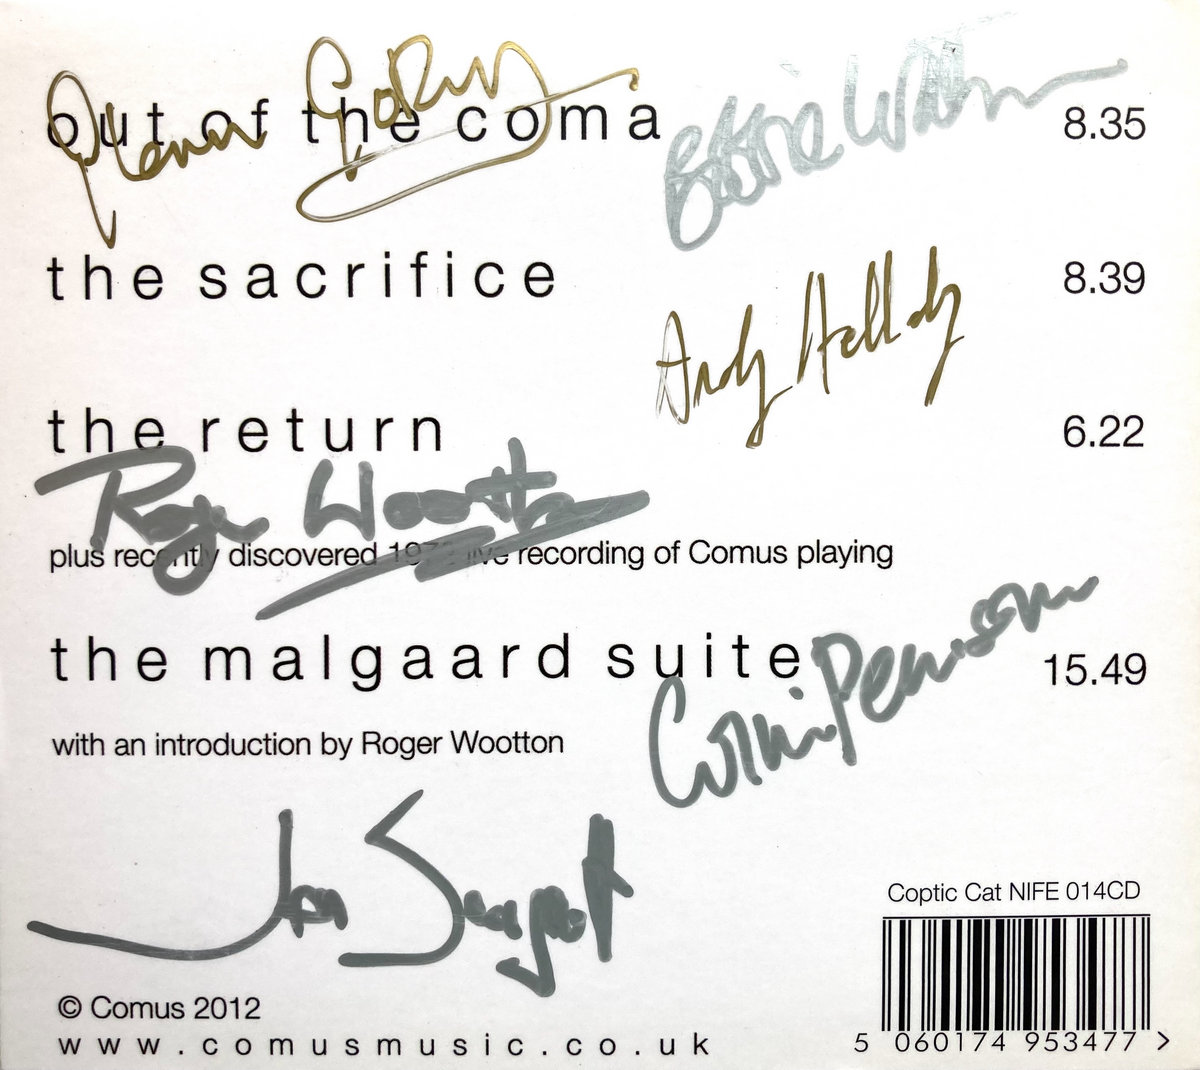 out of the coma 8.35
Glenn Goring
Bobbie Watson
the sacrifice 8.39
Andy Hellaby
the return 6.22
Roger Wootton
plus recently discovered live recording of Comus playing
the malgaard suite 15.49
Colin Pearson
with an introduction by Roger Wootton
Jon Seagroatt
Coptic Cat NIFE 014CD
© Comus 2012
www.comusmusic.co.uk
5 060174 953477 >